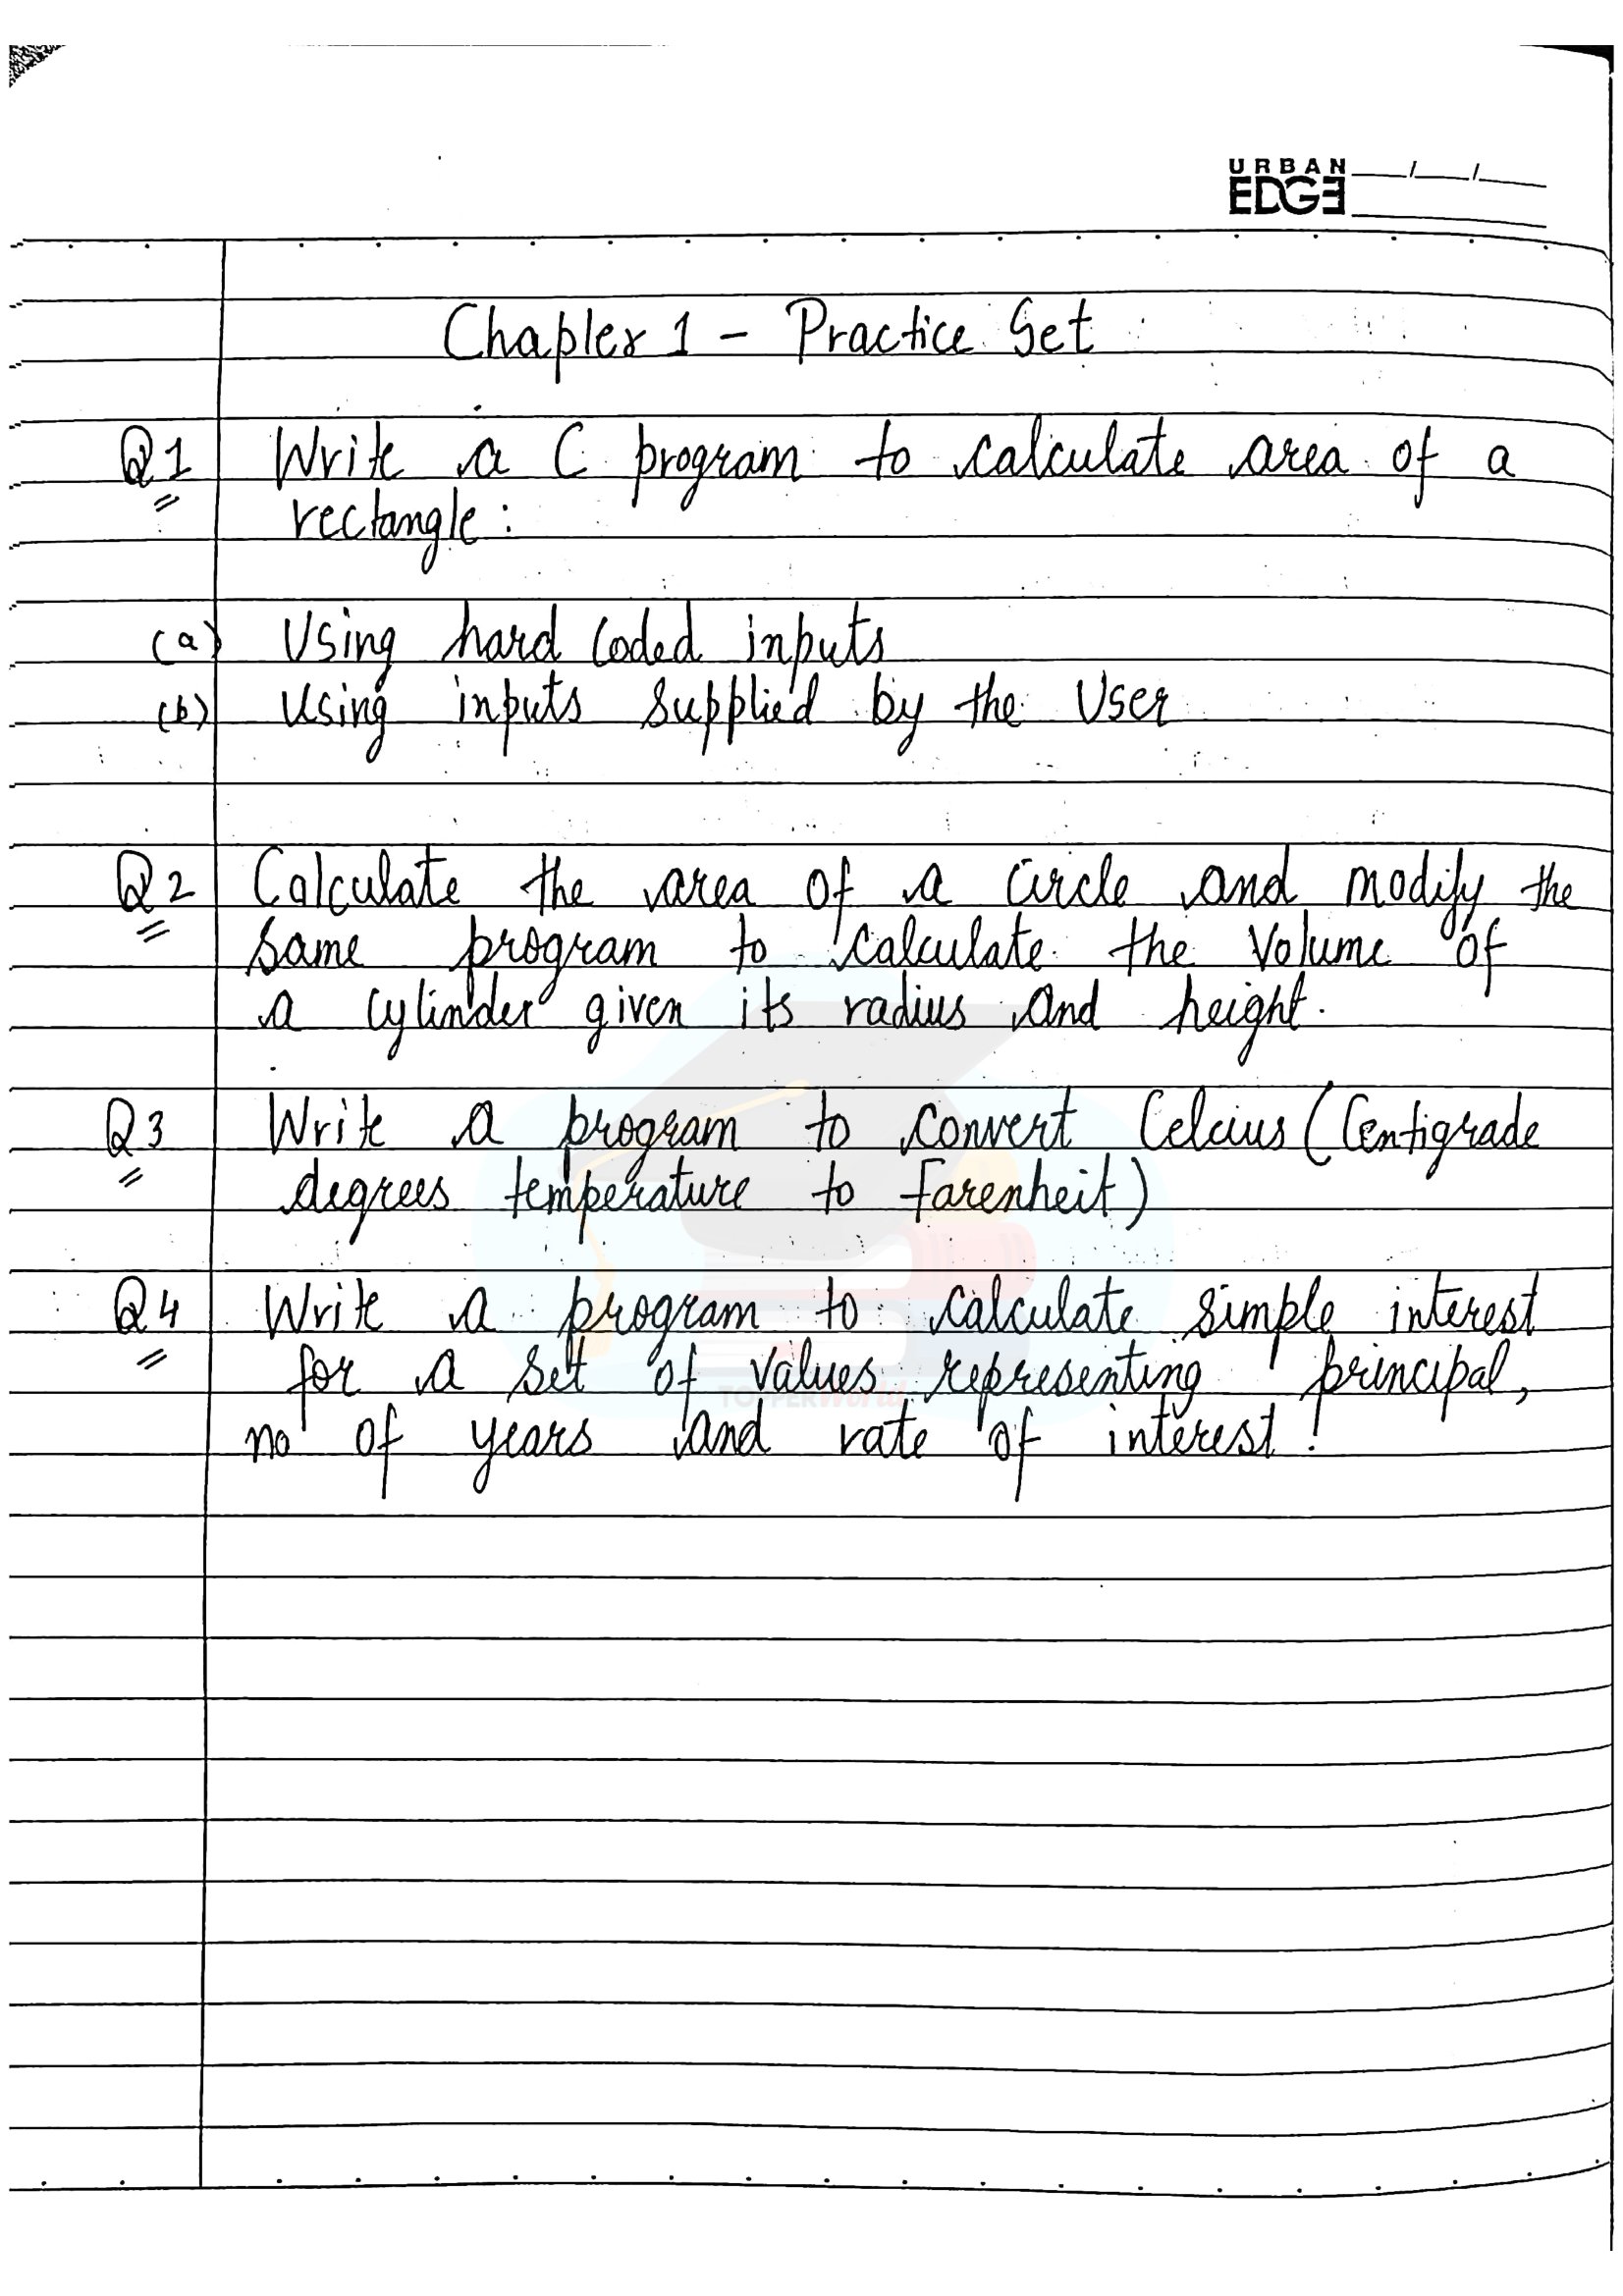 URBAN
EDGE
Chapter 1 - Practice Set
Q1 Write a C program to calculate area of a
rectangle:
(a) Using hard coded inputs
(b) Using inputs supplied by the User
Q2 Calculate the area of a circle and modify the
same program to calculate the volume of
a cylinder given its radius and height.
Q3 Write a program to convert Celcius (Centigrade
degrees temperature to Farenheit)
Q4 Write a program to calculate simple interest
for a set of values representing principal,
TOPPERWorld
no of years and rate of interest.